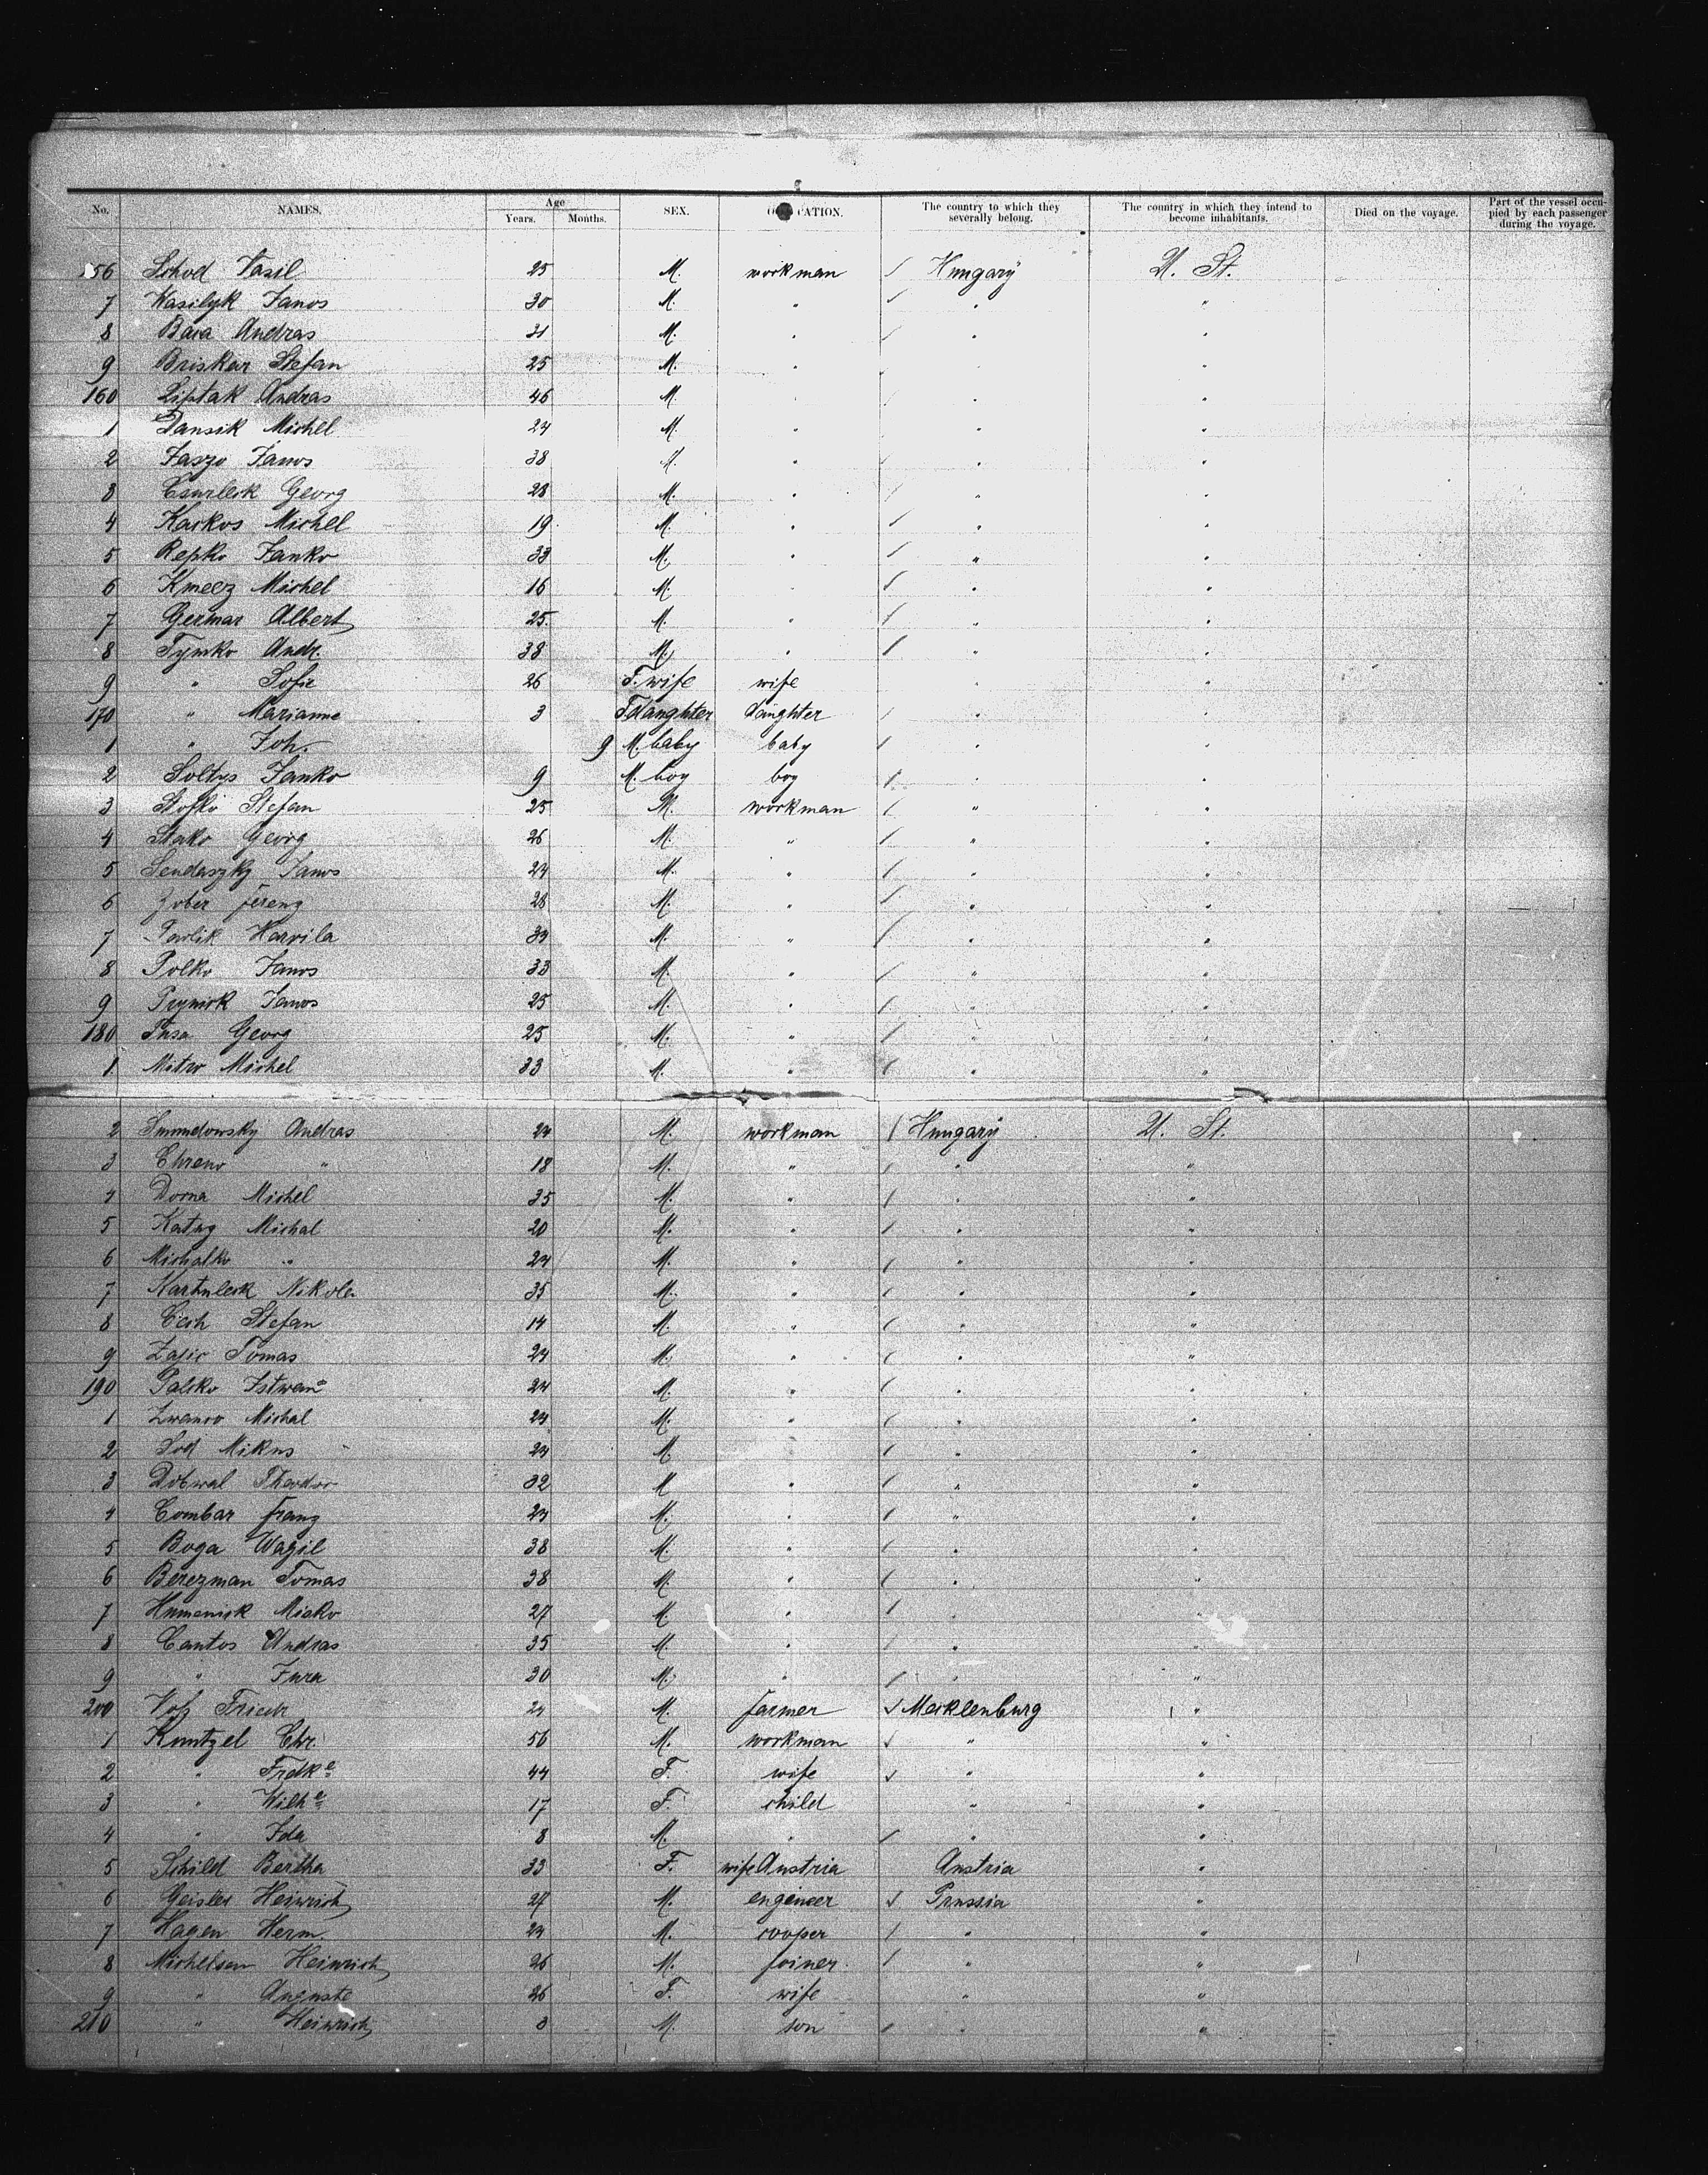 No. NAMES. Age Years. Months. SEX. OCCUPATION. The country to which they severally belong. The country in which they intend to become inhabitants. Died on the voyage. Part of the vessel occupied by each passenger during the voyage.
156 Schod Vasil 25 M. workman / Hungary U. St.
7 Wasilyk Janos 30 M. " / " "
8 Bara Andras 31 M. " / " "
9 Briskar Stefan 25 M. " " "
160 Liptak Andras 46 M. " / " "
1 Dansik Michel 24 M. " " "
2 Jaszo Janos 38 M. " / " "
3 Csurleck Georg 28 M. " / " "
4 Karkos Michel 19 M. " / " "
5 Repko Janko 33 M. " / " "
6 Kmecz Michel 16 M. " / " "
7 Germar Albert 25 M. " / " "
8 Tymko Andr. 38 M. " / " "
9 " Sofie 26 F. wife wife " "
170 " Marianne 3 F daughter daughter / " "
1 " Joh. 9 M. baby baby / " "
2 Soltys Janko 9 M. boy boy / " "
3 Stofko Stefan 25 M. workman / " "
4 Stako Georg 26 M. " / " "
5 Sendaszky Janos 24 M. " / " "
6 Zober Ferenz 28 M. " / " "
7 Pavlik Havrila 34 M. " / " "
8 Polko Janos 33 M. " / " "
9 Janos 25 M. " / " "
180 Pusa Georg 25 M. " / " "
1 Mitro Michel 33 M. " / " "
2 Andras 24 M. workman / Hungary U. St.
3 Chreno " 18 M. " / " "
4 Dorna Michel 35 M. " / " "
5 Michal 20 M. " / " "
6 Michalko " 24 M. " / " "
7 Nikola 35 M. " / " "
8 Cech Stefan 14 M. " / " "
9 Zajic Tomas 24 M. " / " "
190 Palsko Istwan 24 M. " / " "
1 Michal 24 M. " / " "
2 Sod Mikus 24 M. " / " "
3 Dobwal Theodor 32 M " / " "
4 Combar Franz 24 M. " / " "
5 Boga Wazil 38 M. " / " "
6 Berezman Tomas 38 M. " / " "
7 Humenick Misko 27 M. " / " "
8 Cantos Andras 35 M. " / " "
9 " Jura 30 M. " / " "
200 Friedr 24 M. farmer / Mecklenburg "
1 Kuntzel Chr. 56 M. workman / " "
2 " Frdke 44 F. wife / " "
3 " Wilhe 17 F. child " "
4 " Ida 8 M. " / " "
5 Schild Bertha 33 F. wife Austria Austria "
6 Geisler Heinrich 27 M. engineer / Prussia "
7 Hagen Herm. 24 M. cooper / " "
8 Michelsen Heinrich 26 M. joiner / " "
9 " Auguste 26 F. wife " "
210 " Heinrich 3 M. son / " "